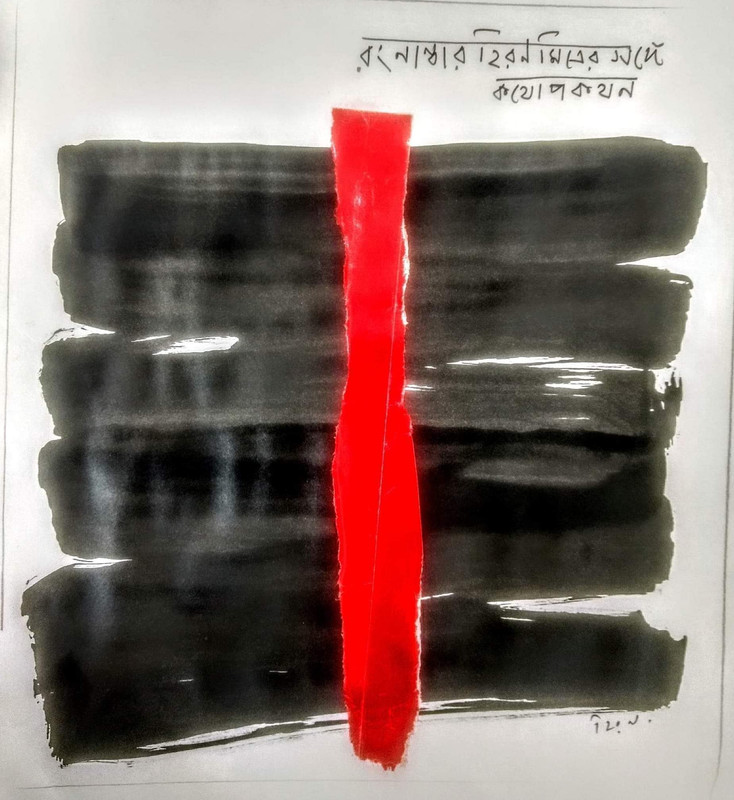 রং নাম্বার হিরণ মিত্রের সঙ্গে
কথোপকথন
হিরণ